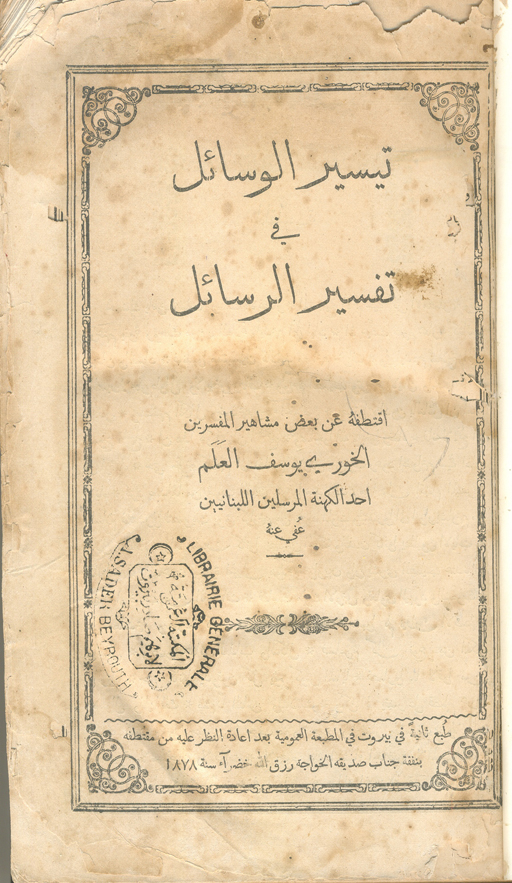 تيسير الوسائل
في
تفسير الرسائل
اقتطفهُ عن بعض مشاهير المفسرين
الخوري يوسف العَلَم
احد الكهنة المرسلين اللبنانيين
عُفي عنهُ
LIBRAIRIE GÉNÉRALE
A. SADER BEYROUTH
المكتبة العمومية
طُبع ثانيةً في بيروت في المطبعة العمومية بعد اعادة النظر عليه من مقتطفه
بنفقة جناب صديقه الخواجه رزق الله خضرآء سنة ١٨٧٨